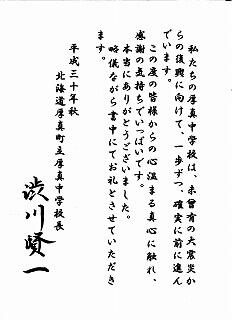 私たちの厚真中学校は、未曾有の大震災か
らの復興に向けて、一歩ずつ、確実に前に進ん
でいます。
この度の皆様からの心温まる真心に触れ、
感謝の気持ちでいっぱいです。
本当にありがとうございました。
略儀ながら書中にてお礼とさせていただき
ます。
平成三十年秋
北海道厚真町立厚真中学校長
渋川賢一